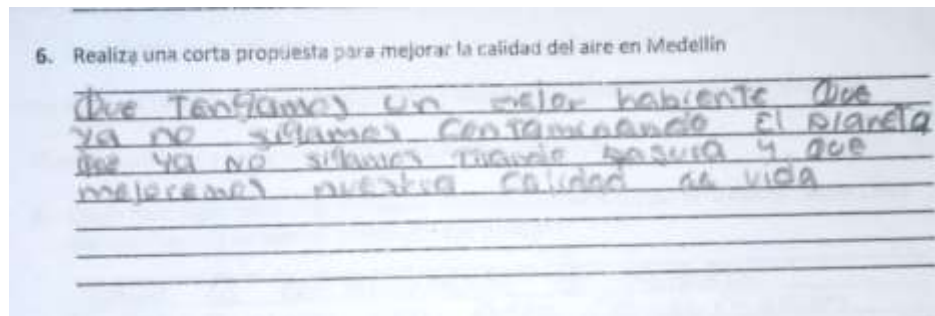 6. Realiza una corta propuesta para mejorar la calidad del aire en Medellín
Que Tengamos un mejor habiente Que
ya no sigamos contaminando El planeta
que ya no sigamos tirando basura y que
mejoremos nuestra calidad de vida